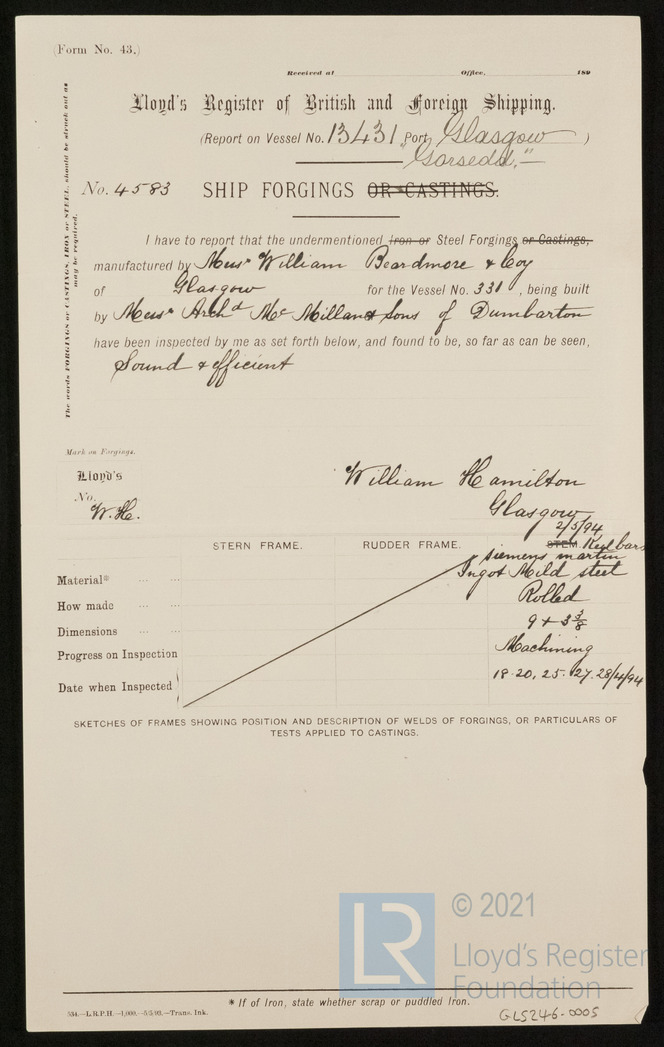 (Form No. 43.)
Received at Office, 189
Lloyd's Register of British and Foreign Shipping.
(Report on Vessel No. 13431, Port Glasgow )
"Gorsedd,"
No. 4583 SHIP FORGINGS OR CASTINGS.
I have to report that the undermentioned Iron or Steel Forgings or Castings,
manufactured by Messrs William Beardmore & Coy
of Glasgow for the Vessel No. 331, being built
by Messrs Archd Mc Millan & Sons of Dumbarton
have been inspected by me as set forth below, and found to be, so far as can be seen,
Sound & efficient
The words FORGINGS or CASTINGS, IRON or STEEL, should be struck out as
may be required.
Mark on Forgings.
Lloyd's
No.
W.H.
William Hamilton
Glasgow
2/5/94
STERN FRAME. RUDDER FRAME. STEM. Keel bars
Material* siemens martin
Ingot Mild steel
How made Rolled
Dimensions 9 + 3 3/8
Progress on Inspection Machining
Date when Inspected 18. 20. 25. 27. 28/4/94
SKETCHES OF FRAMES SHOWING POSITION AND DESCRIPTION OF WELDS OF FORGINGS, OR PARTICULARS OF
TESTS APPLIED TO CASTINGS.
© 2021
LR
Lloyd's Register
Foundation
* If of Iron, state whether scrap or puddled Iron.
534.—L.R.P.H.—1,000.—5/5/93.—Trans. Ink.
GLS246-0005